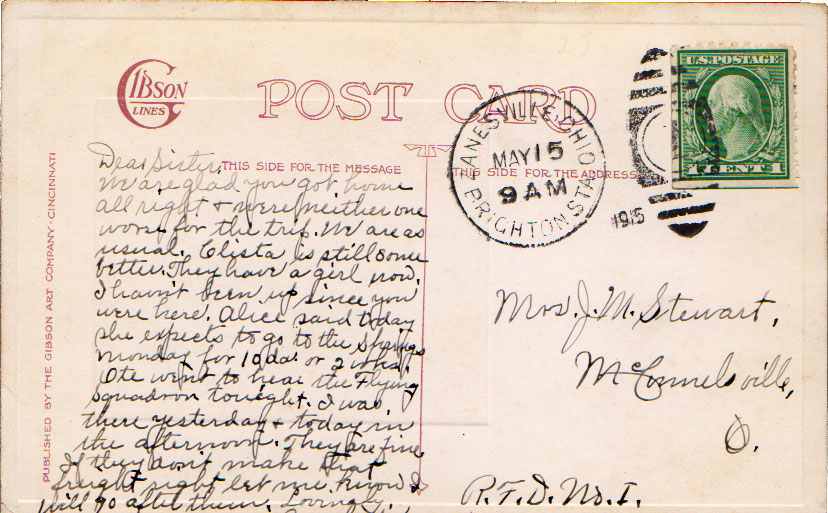 GIBSON
LINES
POST CARD
THIS SIDE FOR THE MESSAGE
THIS SIDE FOR THE ADDRESS
PUBLISHED BY THE GIBSON ART COMPANY - CINCINNATI
U.S. POSTAGE
1 CENTS 1
ZANESVILLE, OHIO
MAY 15
9 AM
BRIGHTON STA.
1915
Dear Sister,
We are glad you got home
all right & were neither one
worse for the trip. We are as
usual. Clista is still some
better. They have a girl now.
I havn't been up since you
were here. Alice said today
she expects to go to the Springs
Monday for 10 da. or 2 wks.
Ote went to hear the Flying
Squadron tonight. I was
there yesterday & today in
the afternoon. They are fine
If they don't make that
freight right let me know I
will go after them. Lovingly,
Mrs. J. M. Stewart,
McConnelsville,
O.
R.F.D. No. 1.